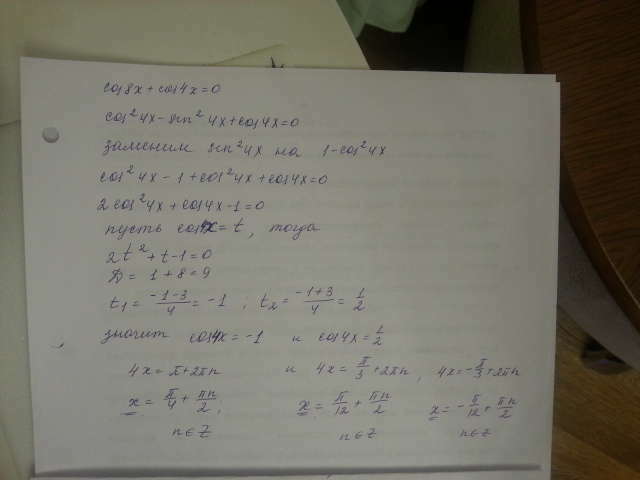 cos8x + cos4x = 0
cos²4x - sin²4x + cos4x = 0
заменим sin²4x на 1 - cos²4x
cos²4x - 1 + cos²4x + cos4x = 0
2cos²4x + cos4x - 1 = 0
пусть cos4x = t, тогда
2t² + t - 1 = 0
D = 1 + 8 = 9
t₁ = (-1-3)/4 = -1 ; t₂ = (-1+3)/4 = 1/2
значит cos4x = -1 и cos4x = 1/2
4x = π + 2πn и 4x = π/3 + 2πn, 4x = -π/3 + 2πn
x = π/4 + πn/2, x = π/12 + πn/2 x = -π/12 + πn/2
n∈Z n∈Z n∈Z